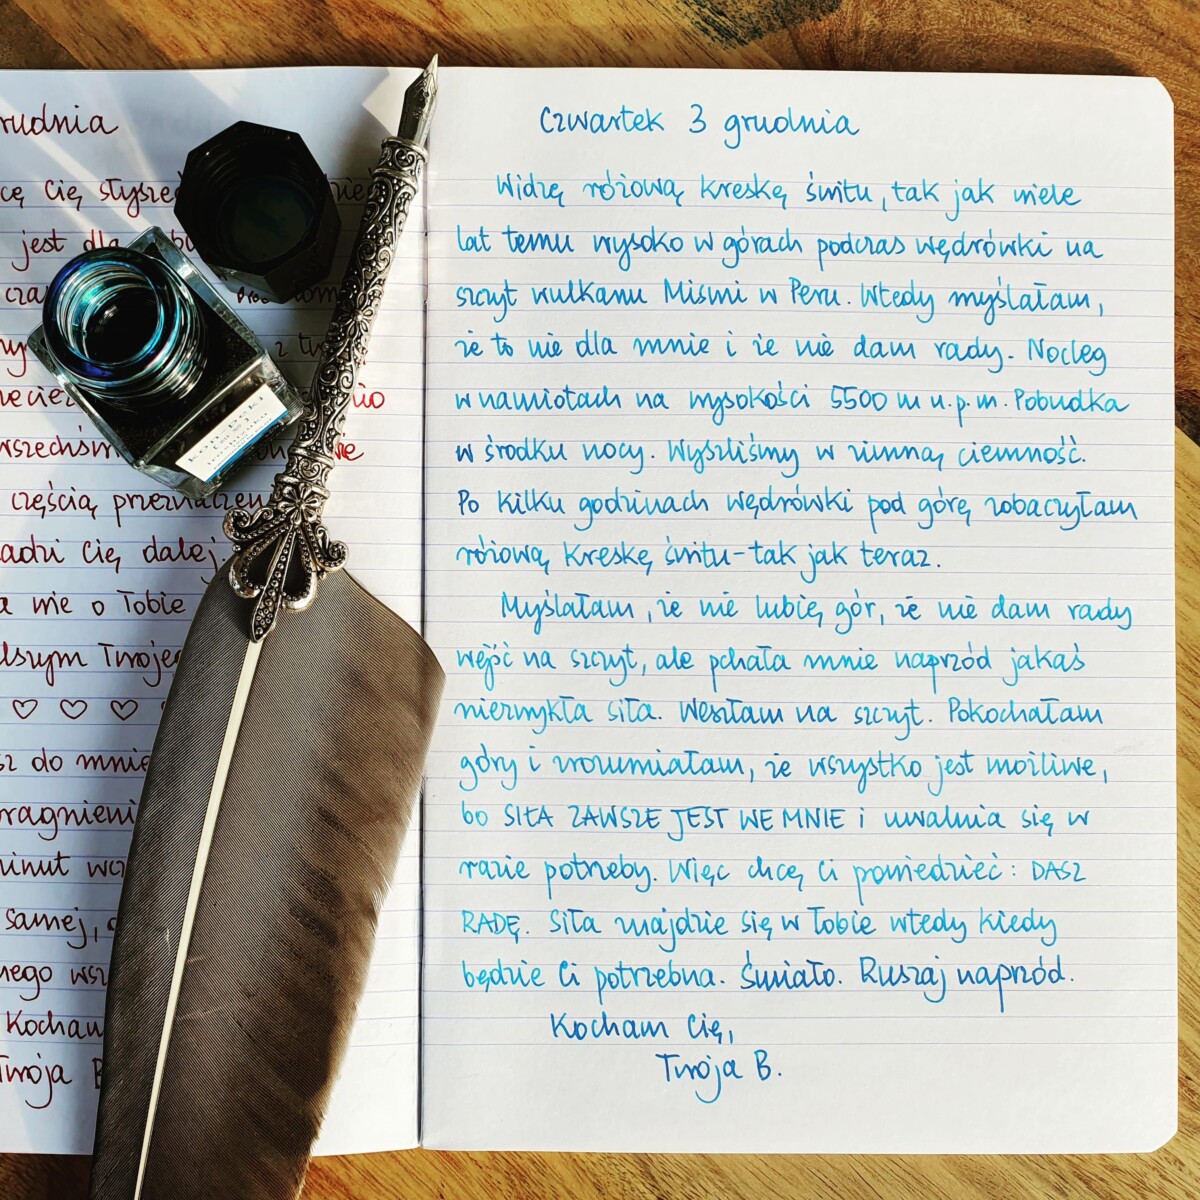 rudnia
cę Cię słyszeć
jest dla
cza
ny z
wszechśw
częścią przeznaczeni
adzi Cię dalej
a nie o Tobie
lszym Twoje
sz do mnie
pragnieni
inut wcz
samej,
nego wsz
Kocham
Twoja B
Czwartek 3 grudnia
Widzę różową kreskę świtu, tak jak wiele
lat temu wysoko w górach podczas wędrówki na
szczyt wulkanu Mismi w Peru. Wtedy myślałam,
że to nie dla mnie i że nie dam rady. Nocleg
w namiotach na wysokości 5500 m n.p.m. Pobudka
w środku nocy. Wyszliśmy w zimną ciemność.
Po kilku godzinach wędrówki pod górę zobaczyłam
różową kreskę świtu - tak jak teraz.
Myślałam, że nie lubię gór, że nie dam rady
wejść na szczyt, ale pchała mnie naprzód jakaś
niezwykła siła. Weszłam na szczyt. Pokochałam
góry i zrozumiałam, że wszystko jest możliwe,
bo SIŁA ZAWSZE JEST WE MNIE i uwalnia się w
razie potrzeby. Więc chcę Ci powiedzieć: DASZ
RADĘ. Siła znajdzie się w Tobie wtedy kiedy
będzie Ci potrzebna. Śmiało. Ruszaj naprzód.
Kocham Cię,
Twoja B.